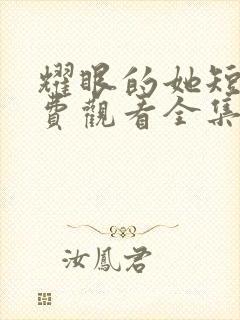 耀眼的她短
費觀看全集
汝鳳君